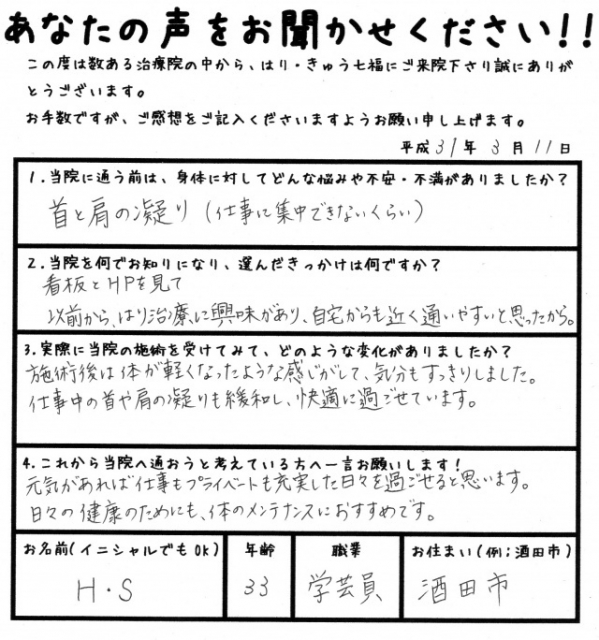 あなたの声をお聞かせください!!
この度は数ある治療院の中から、はり・きゅう七福にご来院下さり誠にありが
とうございます。
お手数ですが、ご感想をご記入くださいますようお願い申し上げます。
平成31年3月11日
1.当院に通う前は、身体に対してどんな悩みや不安・不満がありましたか?
首と肩の凝り(仕事に集中できないくらい)
2.当院を何でお知りになり、選んだきっかけは何ですか?
看板とHPを見て
以前から、はり治療に興味があり、自宅からも近く通いやすいと思ったから。
3.実際に当院の施術を受けてみて、どのような変化がありましたか?
施術後は体が軽くなったような感じがして、気分もすっきりしました。
仕事中の首や肩の凝りも緩和し、快適に過ごせています。
4.これから当院へ通おうと考えている方へ一言お願いします!
元気があれば仕事もプライベートも充実した日々を過ごせると思います。
日々の健康のためにも、体のメンテナンスにおすすめです。
お名前(イニシャルでもOK) 年齢 職業 お住まい(例;酒田市)
H・S 33 学芸員 酒田市